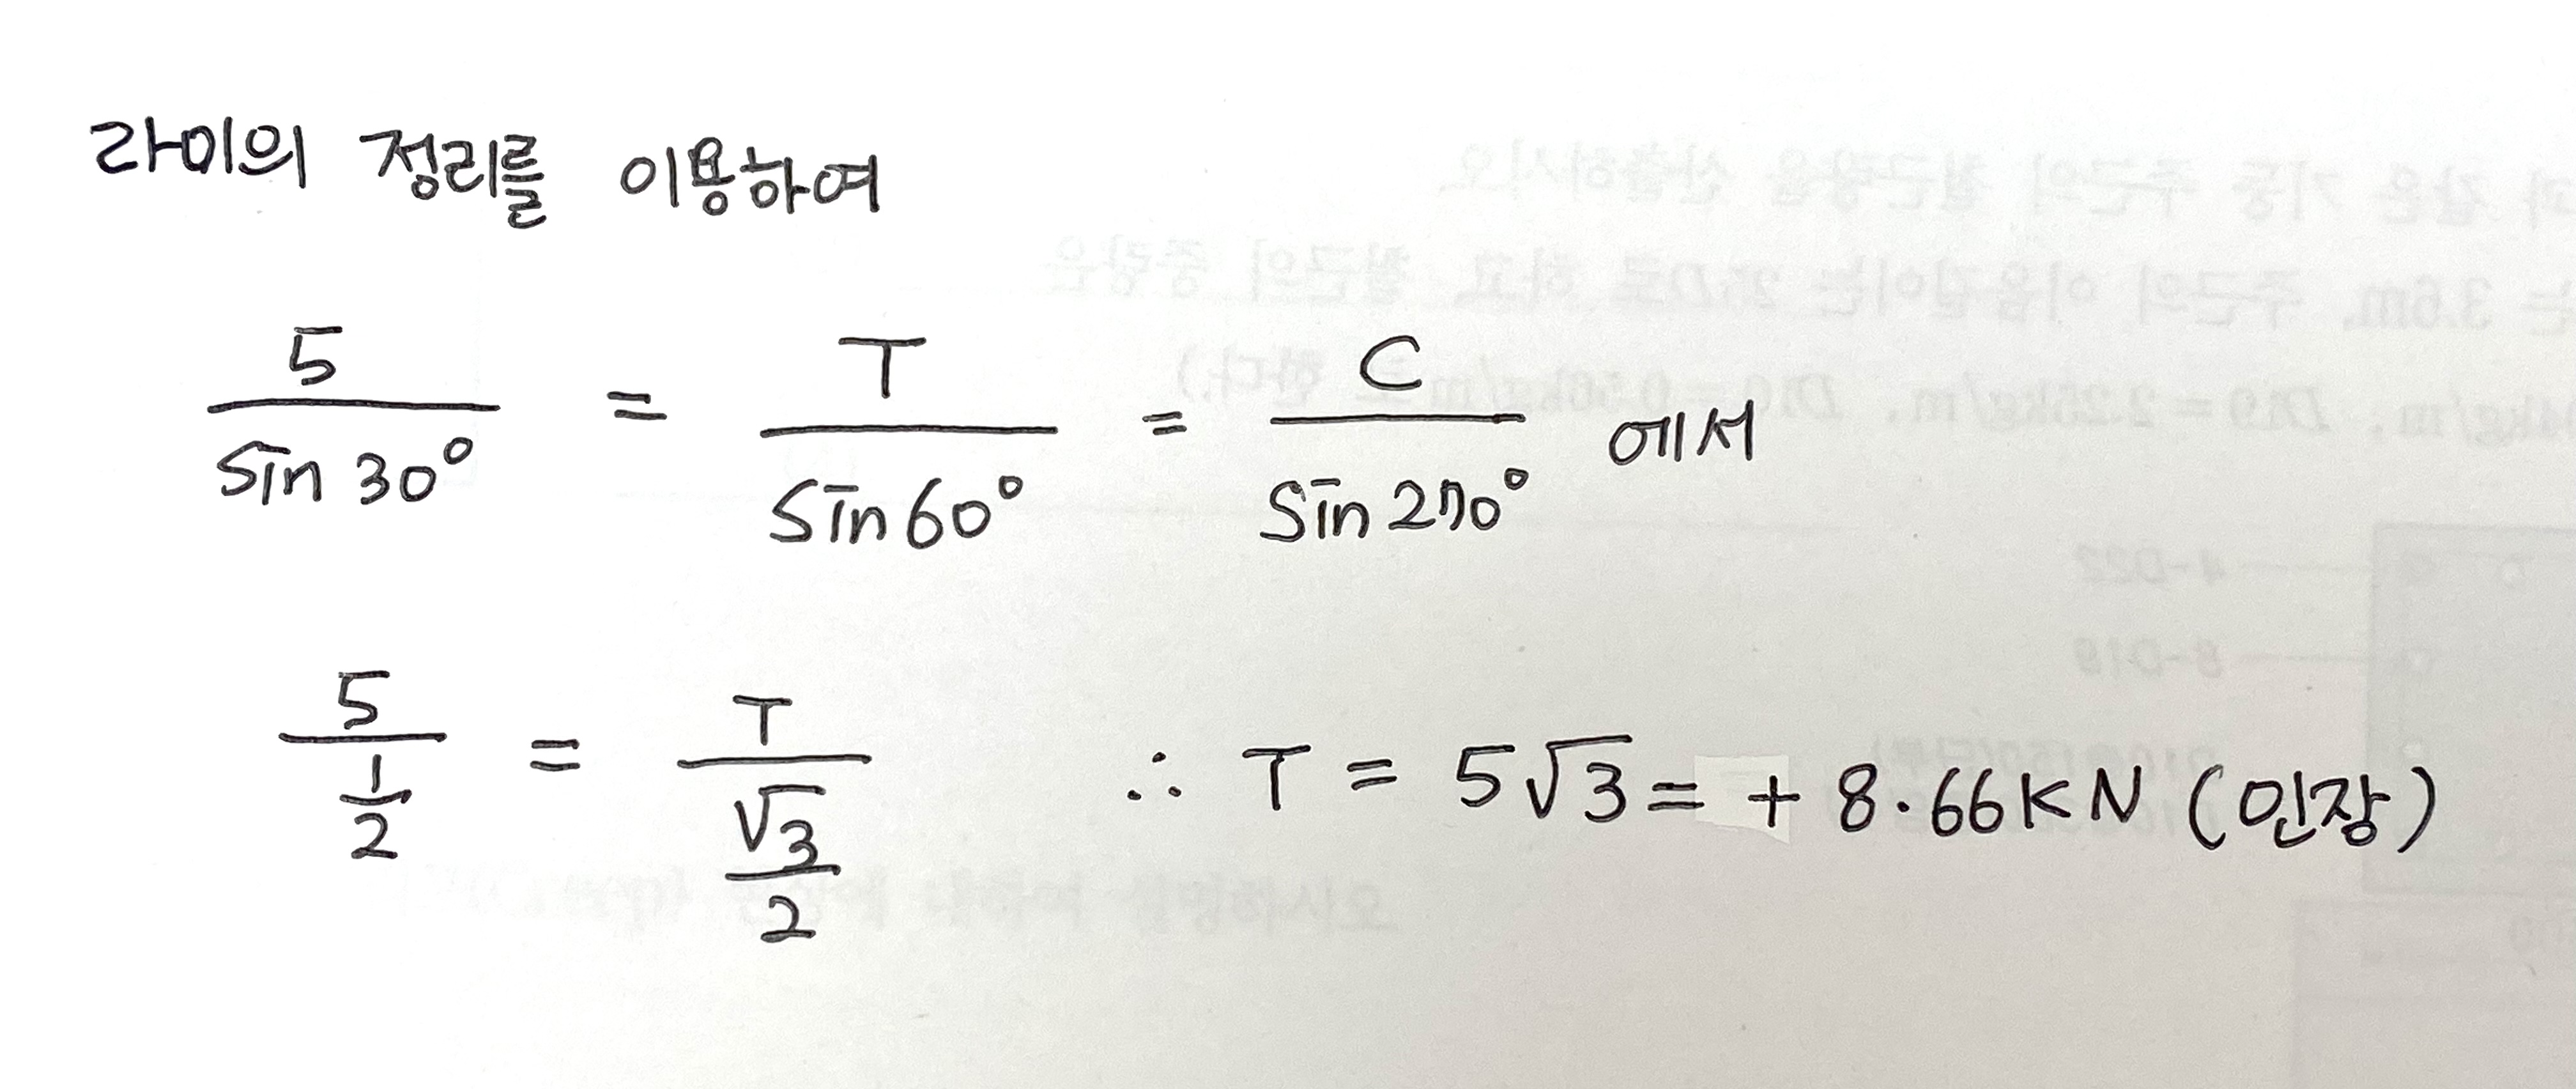 라미의 정리를 이용하여
5/sin 30° = T/sin 60° = C/sin 270° 에서
5/(1/2) = T/(√3/2) ∴ T = 5√3 = + 8.66KN (인장)